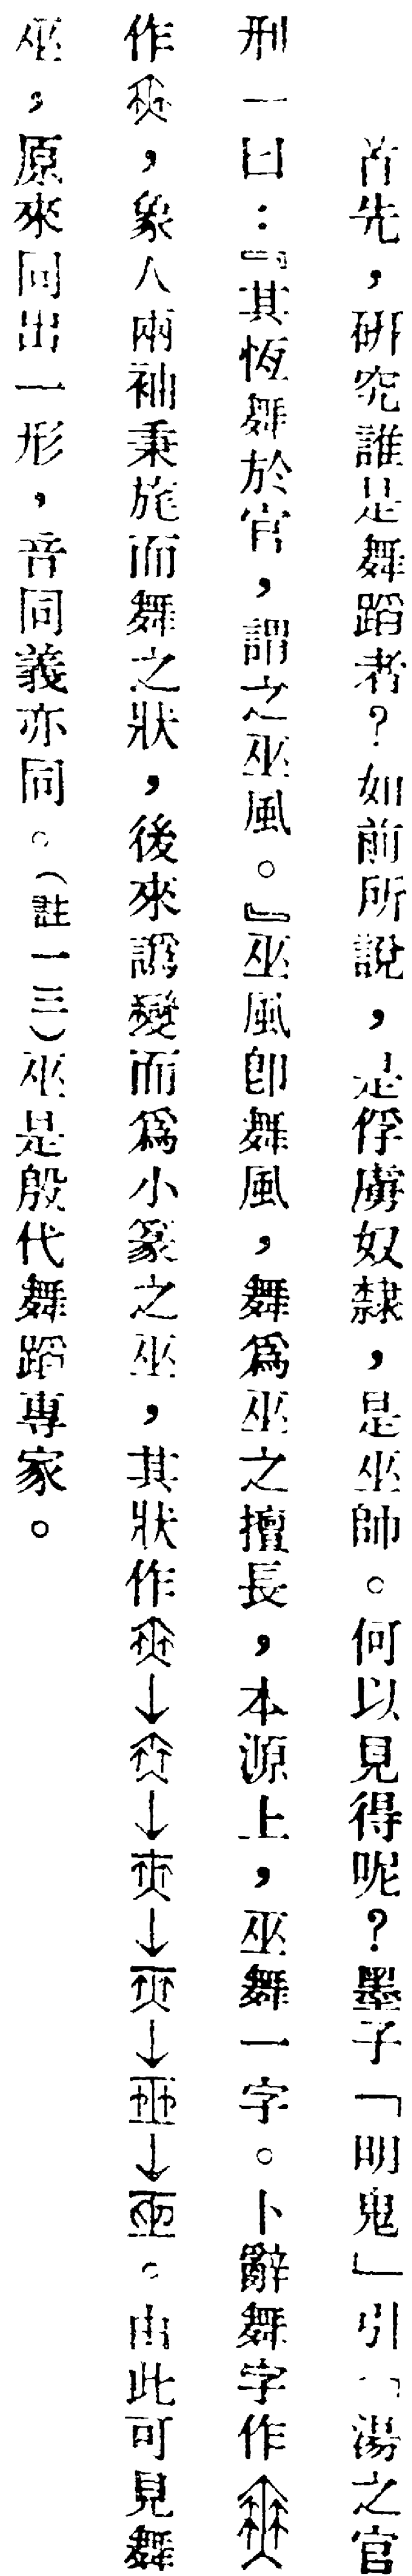 首先，研究誰是舞蹈者？如前所說，是俘虜奴隸，是巫師。何以見得呢？墨子「明鬼」引「湯之官
刑一曰：『其恆舞於官，謂之巫風。』巫風卽舞風，舞爲巫之擅長，本源上，巫舞一字。卜辭舞字作
作，象人兩袖秉旄而舞之狀，後來譌變而爲小篆之巫，其狀作→→→→→。由此可見舞
巫，原來同出一形，音同義亦同。（註一三）巫是殷代舞蹈專家。